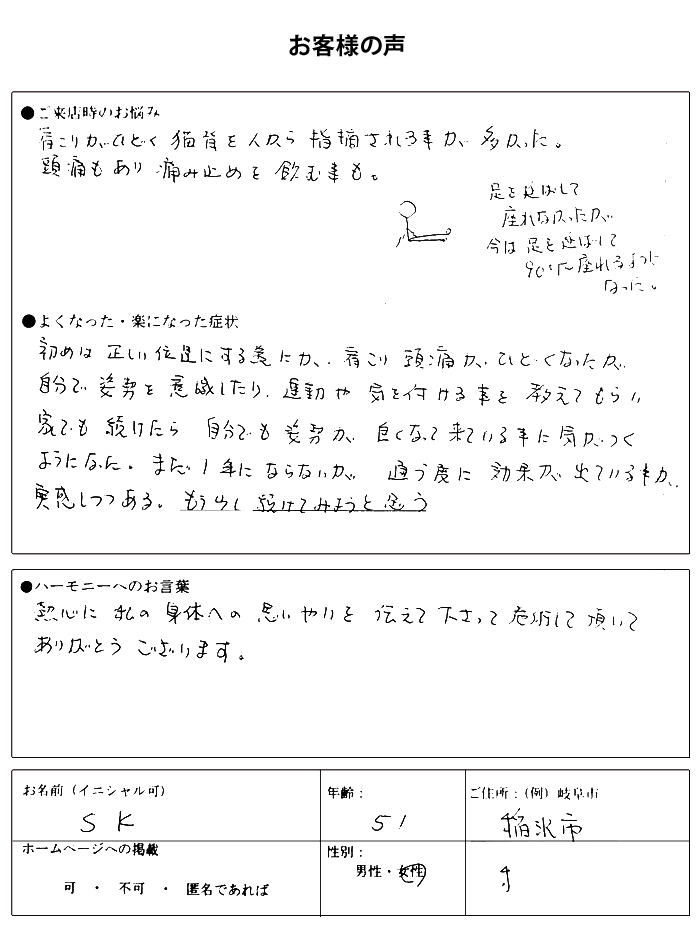 お客様の声
●ご来店時のお悩み
肩こりがひどく 猫背を人から 指摘される事が 多かった。
頭痛もあり 痛み止めを 飲む事も。
足を延ばして
座れなかったが
今は足を延ばして
90°に座れるように
なった。
●よくなった・楽になった症状
初めは 正しい位置にする為にか、肩こり 頭痛が、ひどくなったが
自分で 姿勢を 意識したり、運動や 気を付ける事を 教えてもらい
家でも 続けたら 自分でも 姿勢が 良くなって来ている事に気がつく
ようになった。まだ1年にならないが 通う度に 効果が出ている事が、
実感しつつある。もう少し続けてみようと思う
●ハーモニーへのお言葉
熱心に 私の 身体への 思いやりを 伝えて下さって 施術して頂いて
ありがとう ございます。
お名前（イニシャル可）
S K
年齢：
51
ご住所：（例）岐阜市
稲沢市
ホームページへの掲載
可 ・ 不可 ・ 匿名であれば
性別：
男性・女性